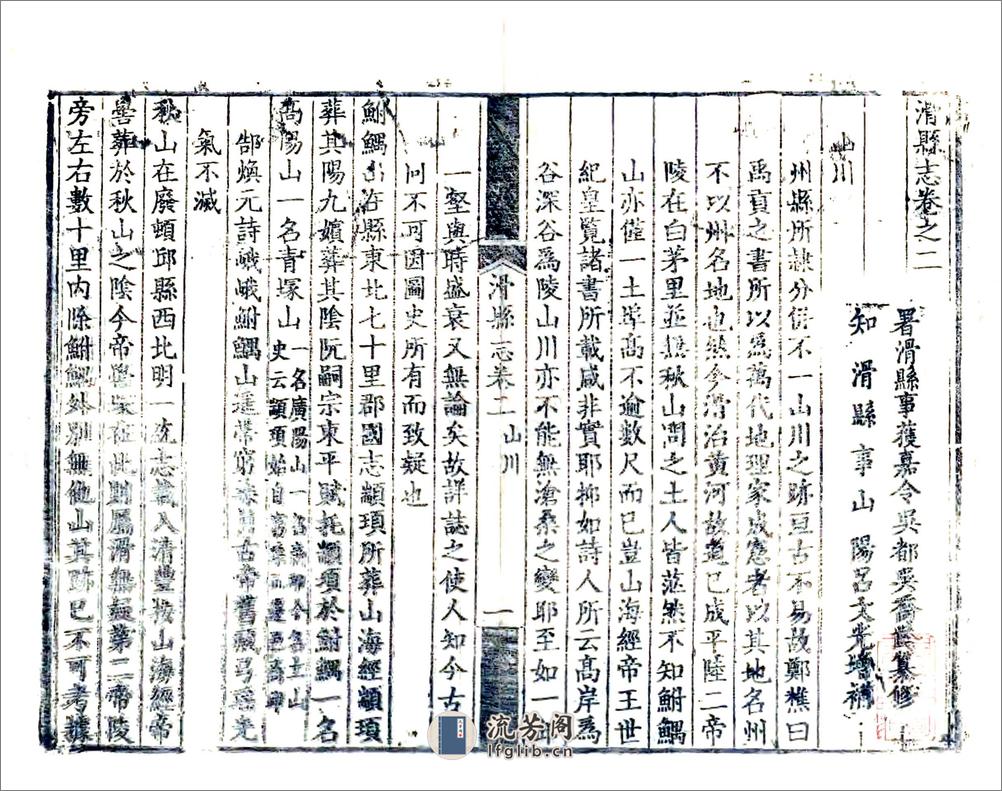 滑縣志卷之二
署滑縣事獲嘉令吳都吳喬齡纂修
知滑縣事山陽呂文光增補
山川
州縣所隸分併不一山川之跡亘古不易故鄭樵曰
禹貢之書所以爲萬代地理家成憲者以其地名州
不以州名地也然今滑治黃河故道已成平陸二帝
陵在白茅里並無秋山問之土人皆茫然不知鮒鰅
山亦僅一土埠高不逾數尺而已豈山海經帝王世
紀皇覽諸書所載咸非實耶抑如詩人所云高岸爲
谷深谷爲陵山川亦不能無滄桑之變耶至如一邱
滑縣志卷二
山川
一
一壑與時盛衰又無論矣故詳誌之使人知今古
同不可因圖史所有而致疑也
鮒鰅山在縣東北七十里郡國志顓頊所葬山海經顓頊
葬其陽九嬪葬其陰阮嗣宗東平賦托顓頊於鮒鰅一名
高陽山一名青塚山一名廣陽山一名
今名土山
史云顓頊始自
郜煥元詩峨峨鮒鰅山
窮
古帝舊
弓
光
氣不滅
秋山在廢頓邱縣西北明一統志載入清豐按山海經帝
嚳葬於秋山之陰今帝嚳塚在此則屬滑無疑第二帝陵
旁左右數十里內除鮒鰅外別無他山其跡已不可考據
流芳阁
lfglib.cn